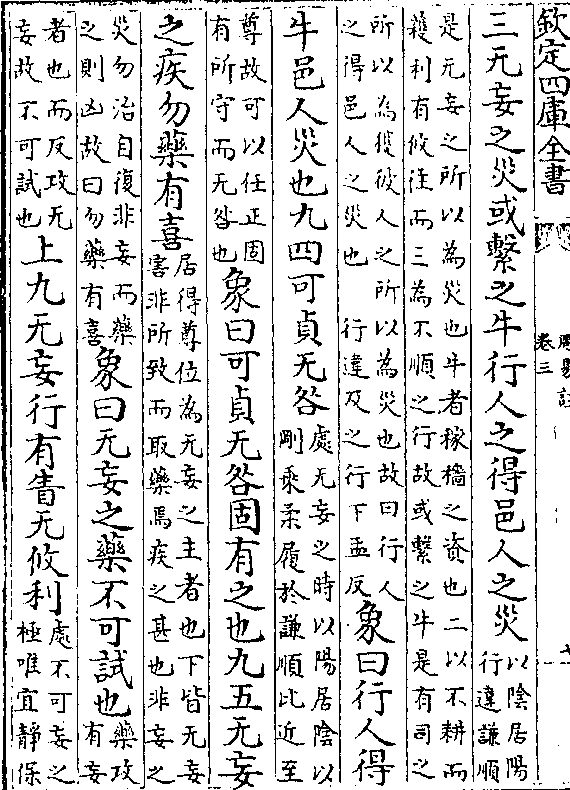 欽定四庫全書
周易註
卷三
三无妄之災或繫之牛行人之得邑人之災
以陰居陽
行違謙順
是无妄之所以為災也牛者稼穡之資也二以不耕而
穫利有攸往而三為不順之行故或繫之牛是有司之
所以為獲彼人之所以為災也故曰行人
之得邑人之災也 行違及之行下孟反
象曰行人得
牛邑人災也九四可貞无咎
處无妄之時以陽居陰以
剛乘柔履於謙順比近至
尊故可以任正固
有所守而无咎也
象曰可貞无咎固有之也九五无妄
之疾勿藥有喜
居得尊位為无妄之主者也下皆无妄
害非所致而取藥焉疾之甚也非妄之
災勿治自復非妄而藥
之則凶故曰勿藥有喜
象曰无妄之藥不可試也
藥攻
有妄
者也而反攻无
妄故不可試也
上九无妄行有眚无攸利
處不可妄之
極唯宜靜保